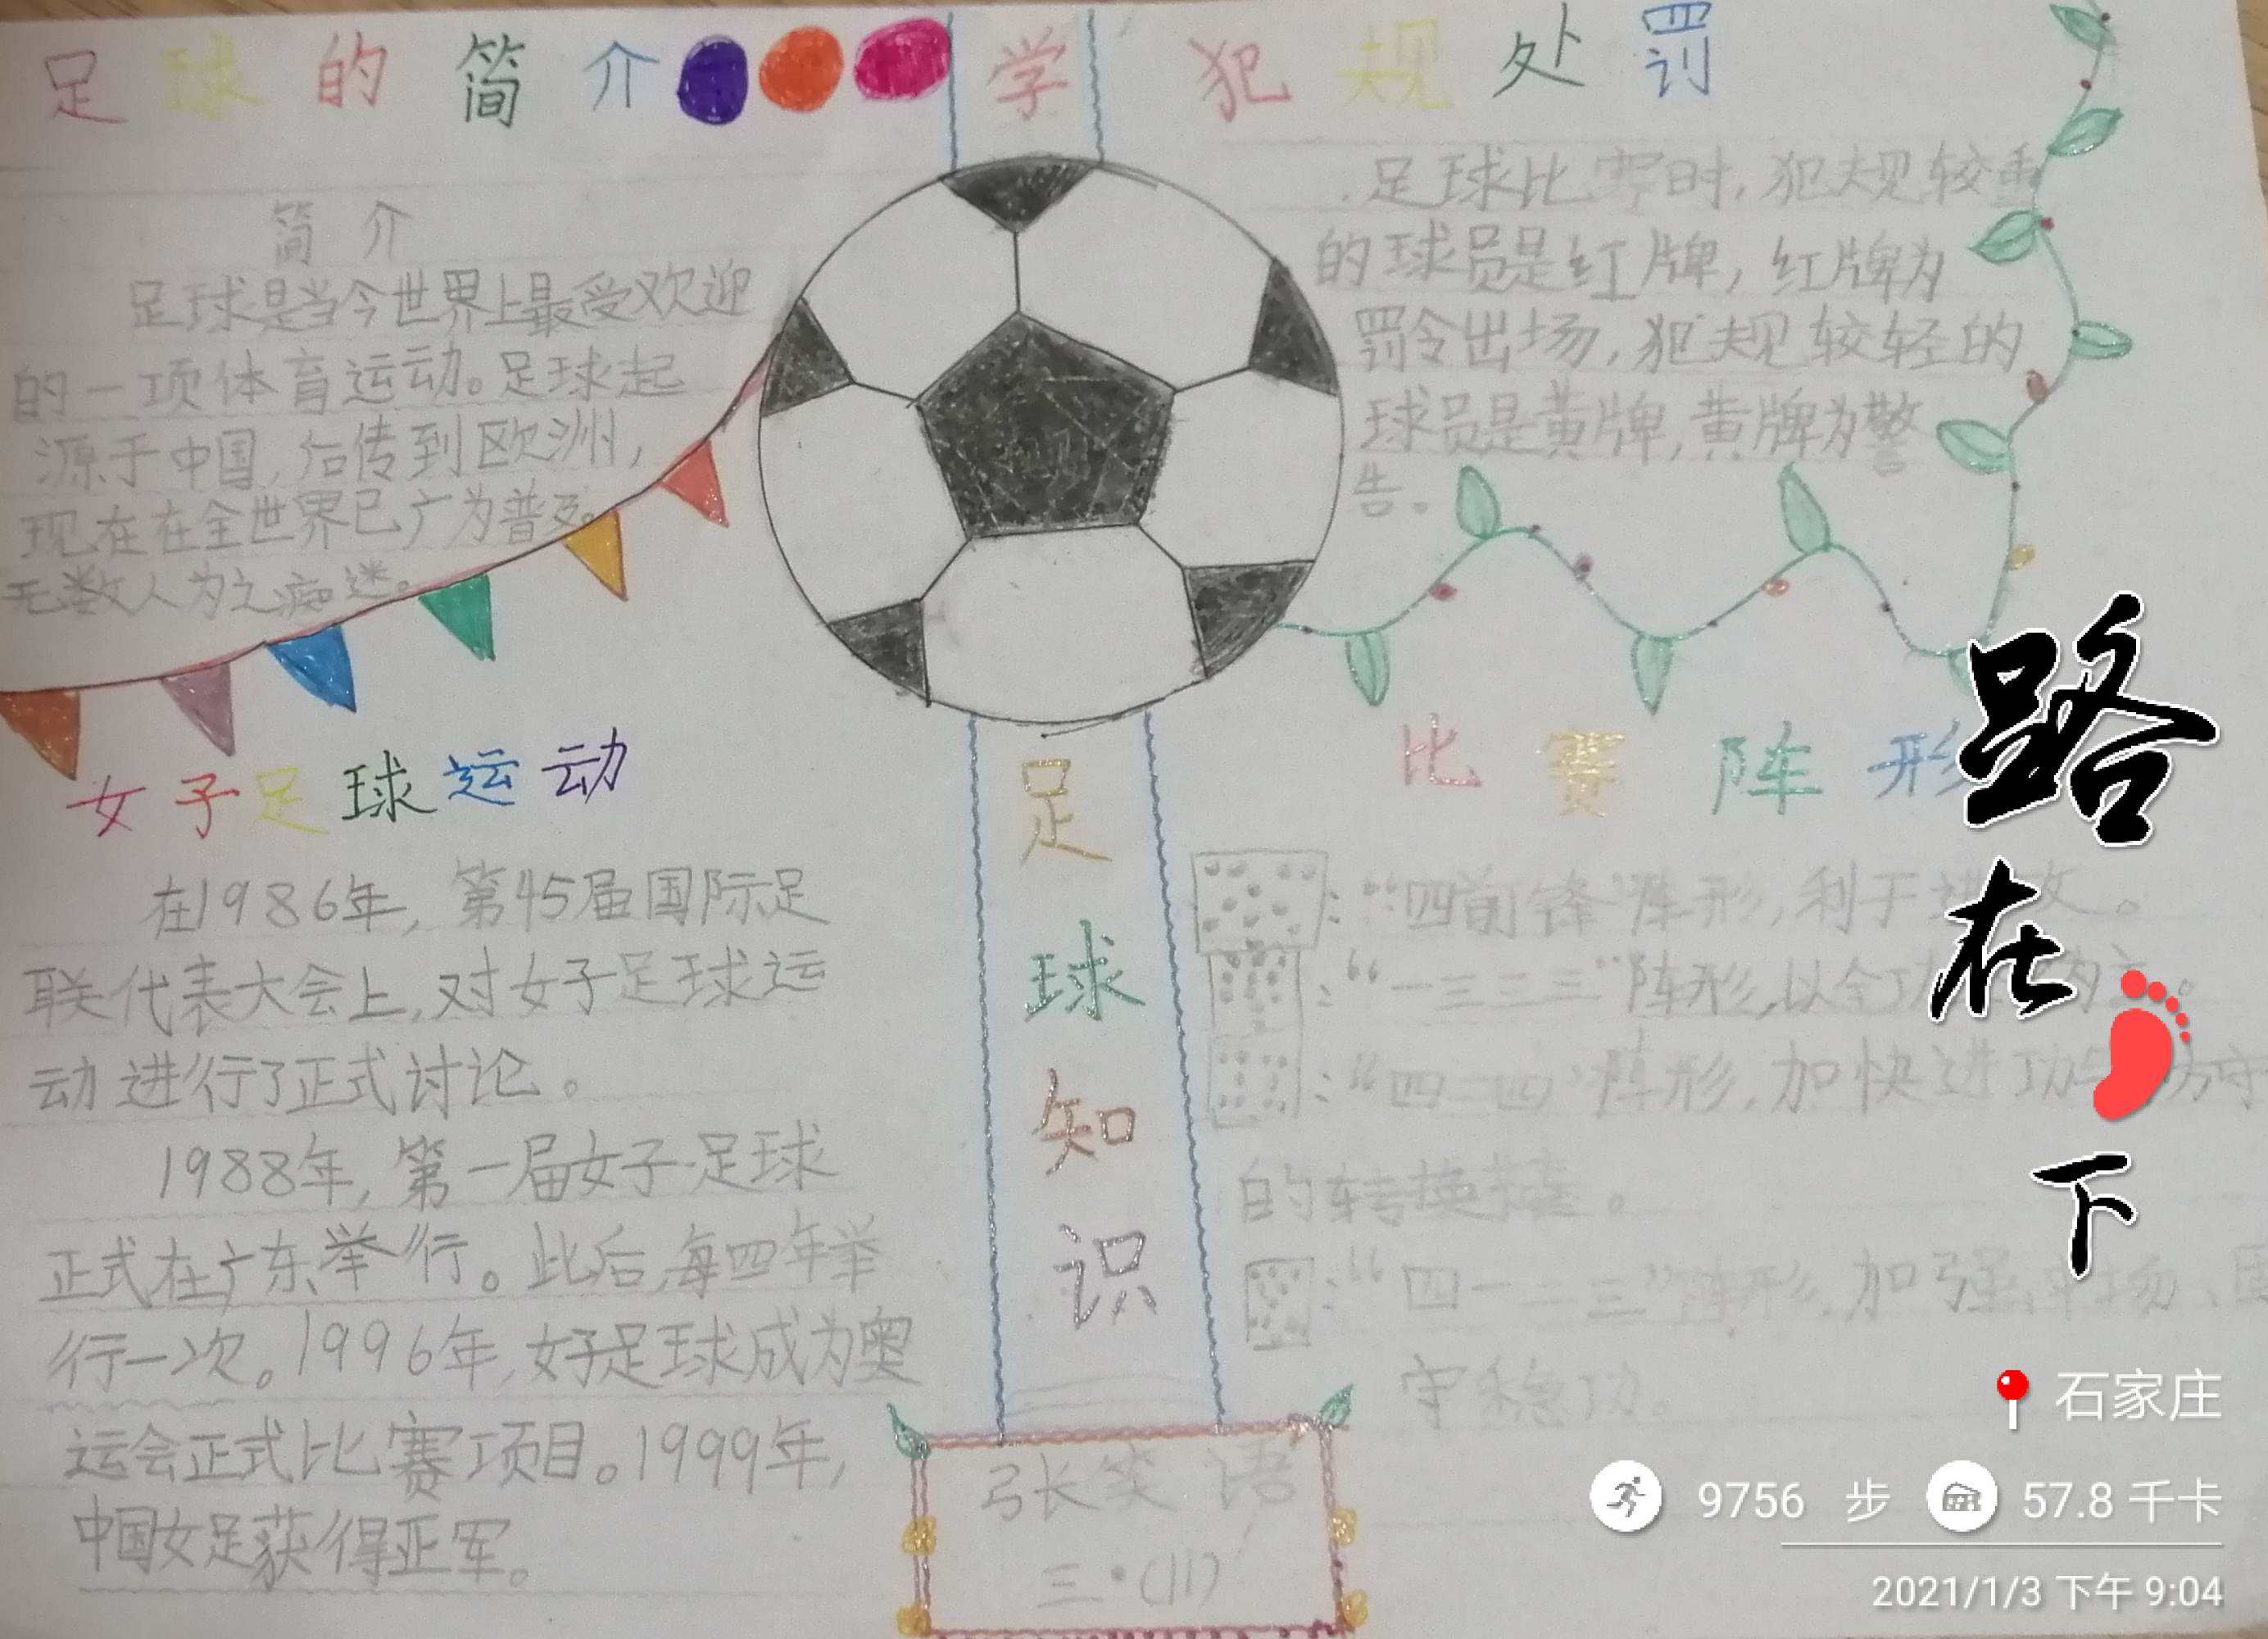 足球的简介
简介
足球是当今世界上最受欢迎
的一项体育运动。足球起
源于中国,后传到欧洲,
现在在全世界已广为普及。
无数人为之痴迷。
女子足球运动
在1986年,第45届国际足
联代表大会上,对女子足球运
动进行了正式讨论。
1988年,第一届女子足球
正式在广东举行。此后,每四年举
行一次。1996年,女子足球成为奥
运会正式比赛项目。1999年,
中国女足获得亚军。
学
足
球
知
识
张笑语
三·(11)
犯规处罚
足球比赛时,犯规较重
的球员是红牌,红牌为
罚令出场,犯规较轻的
球员是黄牌,黄牌为警
告。
比赛阵形
:“四前锋”阵形,利于进攻。
:“一三三三”阵形,以全功为主。
:“四二四”阵形,加快进功防守
的转换
:“四一二三”阵形,加强
守稳功。
路
在
下
石家庄
9756 步 57.8 千卡
2021/1/3 下午 9:04